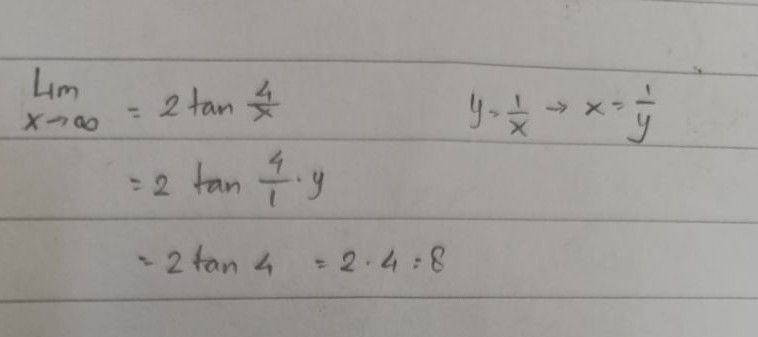 Lim x→∞ = 2 tan 4/x y = 1/x → x = 1/y
= 2 tan 4/1 · y
= 2 tan 4 = 2 · 4 = 8